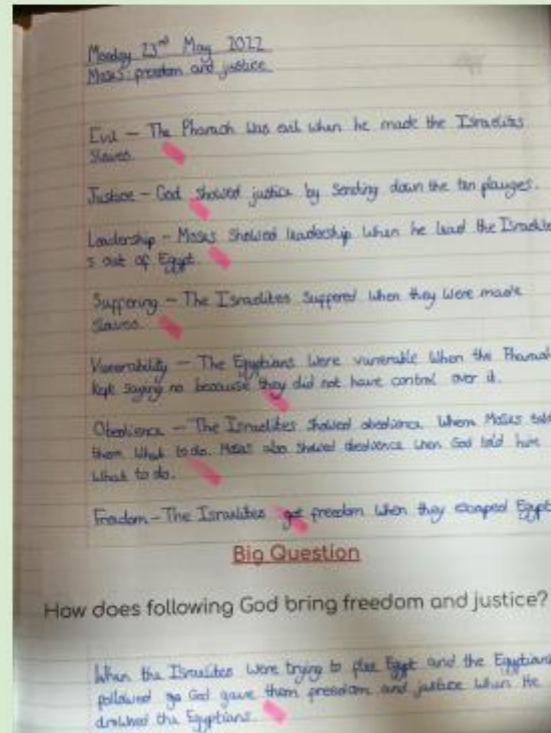 Monday 23rd May 2022
Moses: freedom and justice
Evil – The Pharaoh was evil when he made the Israelites
slaves.
Justice – God showed justice by sending down the ten plauges.
Leadership – Moses showed leadership when he lead the Israelite
s out of Egypt.
Suffering – The Israelites suffered when they were made
slaves.
Vunerability – The Egyptians were vunerable when the Pharaoh
kept saying no because they did not have control over it.
Obedience – The Israelites showed obedience when Moses told
them what to do. Moses also showed obedience when God told him
what to do.
Freedom – The Israelites got freedom when they escaped Egypt
Big Question
How does following God bring freedom and justice?
When the Israelites were trying to flee Egypt and the Egyptians
followed God gave them freedom and justice when He
drowned the Egyptians.